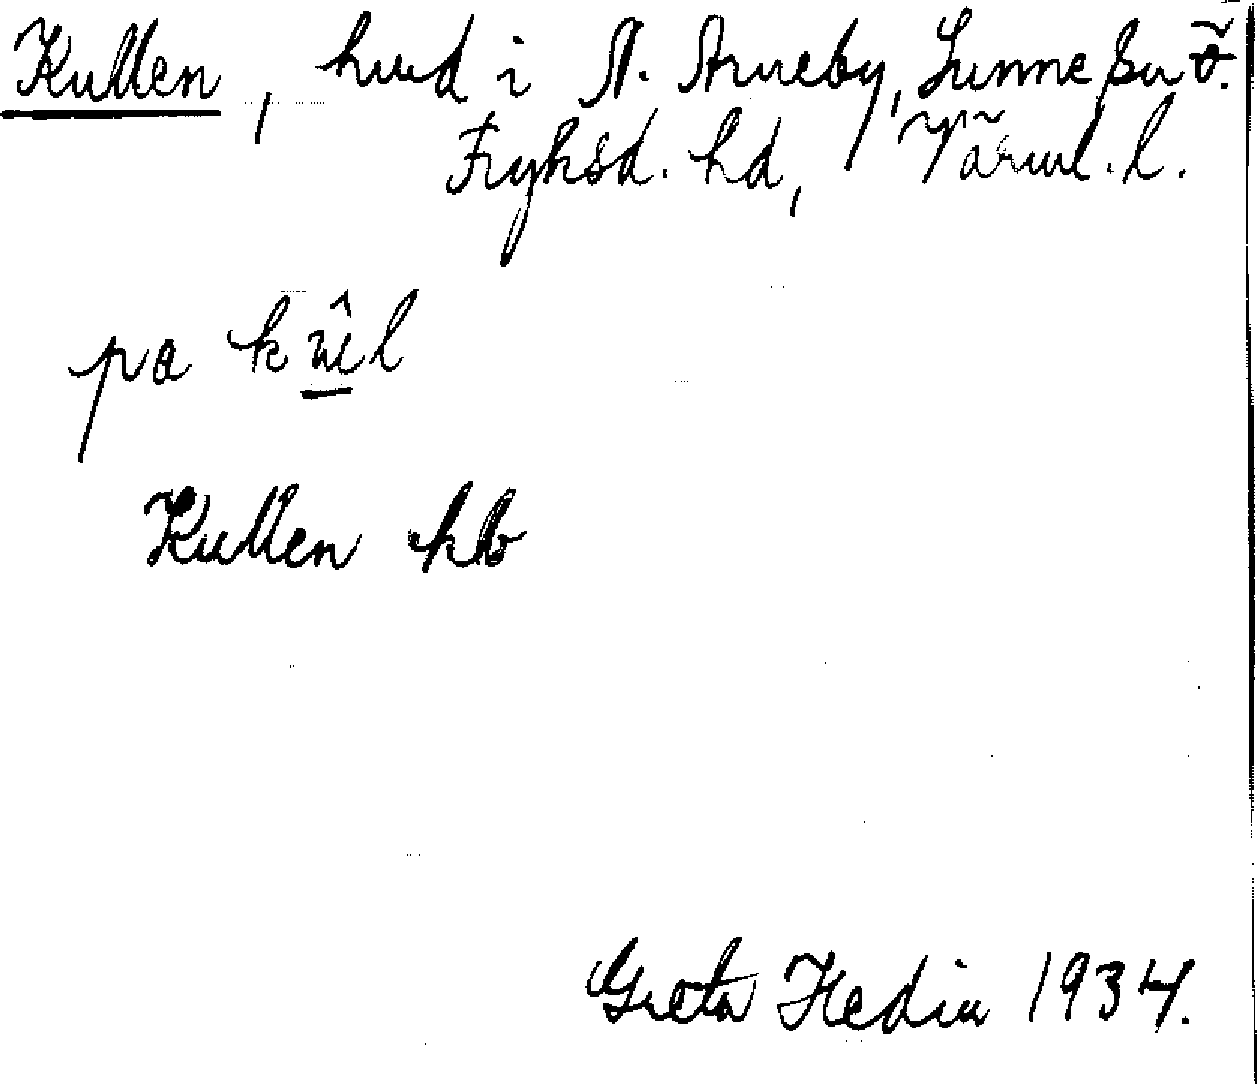 Kullen, hmd i N. Arneby, Sunne sn ö.
Fryksd. hd, Värml. l.
pa kûl
Kullen hb
Greta Hedin 1934.